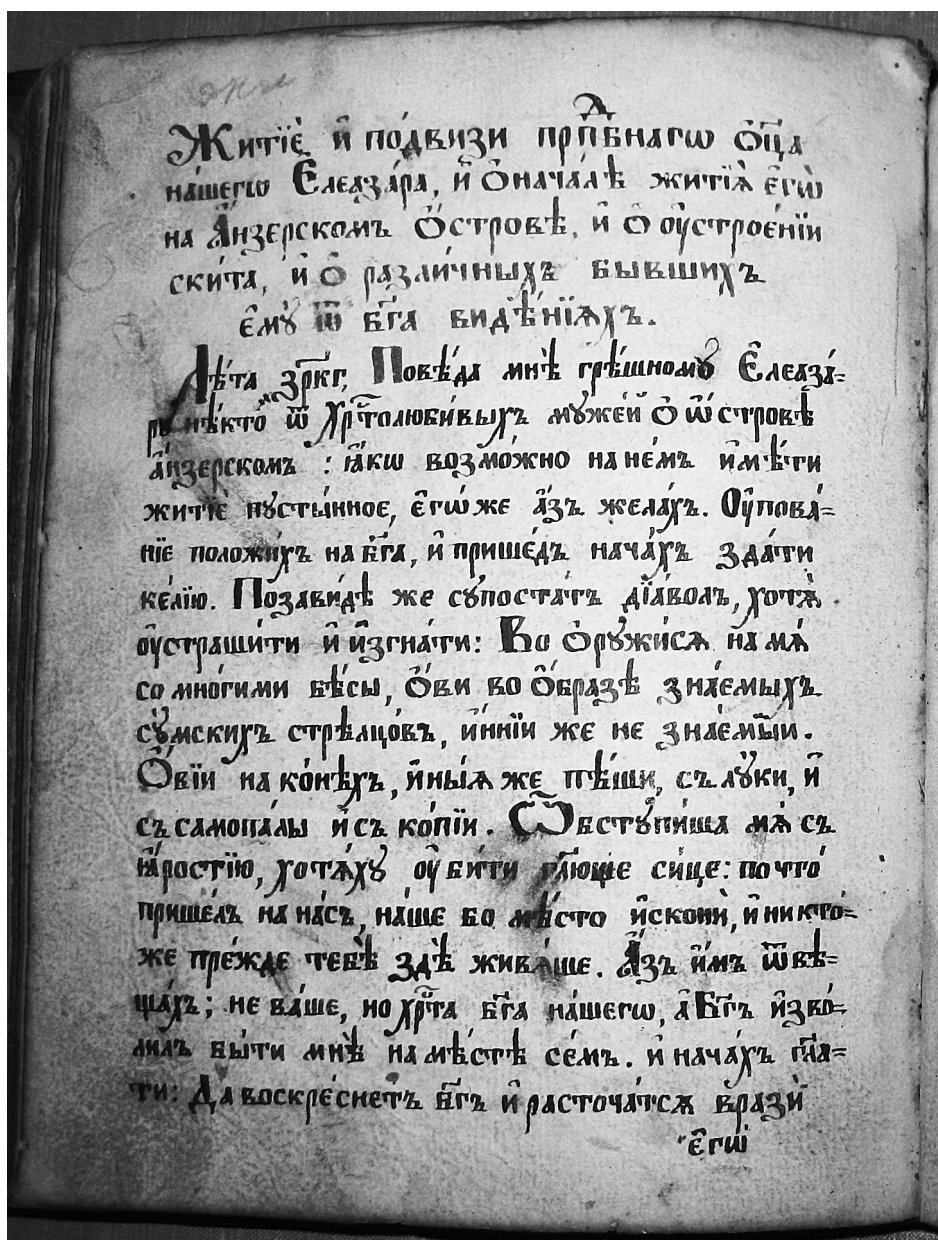 Житїѐ и҆ по́двизи прпⷣбнагѡ ѻ҆ц҃а
на́шегѡ Е҆леаза́ра, и҆ ѻ҆ нача́лѣ житїѧ̀ є҆гѡ̀
на А҆́нзерскомъ Ѻ҆́стровѣ, и҆ ѻ҆ ᲂу҆строе́нїи
ски́та, и҆ ѻ҆ разли́чныхъ бывшихъ
є҆мꙋ̀ ѿ бг҃а видѣ́нїѧхъ.
Лѣ́та зр҃кг, Повѣ́да мнѣ̀ грѣ́шномꙋ Е҆леаза́=
рꙋ нѣ́кто ѿ хрⷭ҇толюби́выхъ мꙋже́й ѻ҆ ѡ҆́стровѣ
а҆́нзерскомъ : ꙗ҆́кѡ возмо́жно на не́мъ и҆мѣ́ти
житїѐ пꙋсты́нное, є҆гѡ́же а҆́зъ жела́хъ. Оу҆пова́=
нїе положи́хъ на бг҃а, и҆ прише́дъ нача́хъ зда́ти
ке́лїю. Позави́дѣ же сꙋпоста́тъ дїа́волъ, хотѧ̀
ᲂу҆страши́ти и҆ и҆згна́ти: Во ѻ҆рꙋжи́сѧ на мѧ̀
со мно́гими бѣ́сы, ѻ҆́ви во ѻ҆́бразѣ зна́емыхъ
сꙋ́мскихъ стрѣлцо́въ, и҆́ннїи же не зна́емїи.
Ѻ҆́вїи на ко́нѣхъ, и҆ны́ѧ же пѣ́ши, съ лꙋ́ки, и҆
съ самопа́лы и҆ съ ко́пїи. Ѡ҆бстꙋпи́ша мѧ̀ съ
ꙗ҆́ростїю, хотѧ́хꙋ ᲂу҆би́ти гл҃юще си́це: по что̀
прише́лъ на на́съ, на́ше бо мѣ́сто и҆сконѝ, и҆ никто́=
же пре́жде тебѐ здѣ̀ живѧ́ше. А҆́зъ и҆̀мъ ѿвѣ=
ща́хъ; не ва́ше, но хрⷭ҇та̀ бг҃а на́шегѡ, а҆ Бг҃ъ и҆зво́=
лилъ бы́ти мнѣ̀ на мѣ́стѣ се́мъ. и҆ нача́хъ гл҃а=
ти: Да воскре́снетъ бг҃ъ и҆ расточа́тсѧ врази̂
є҆гѡ̀